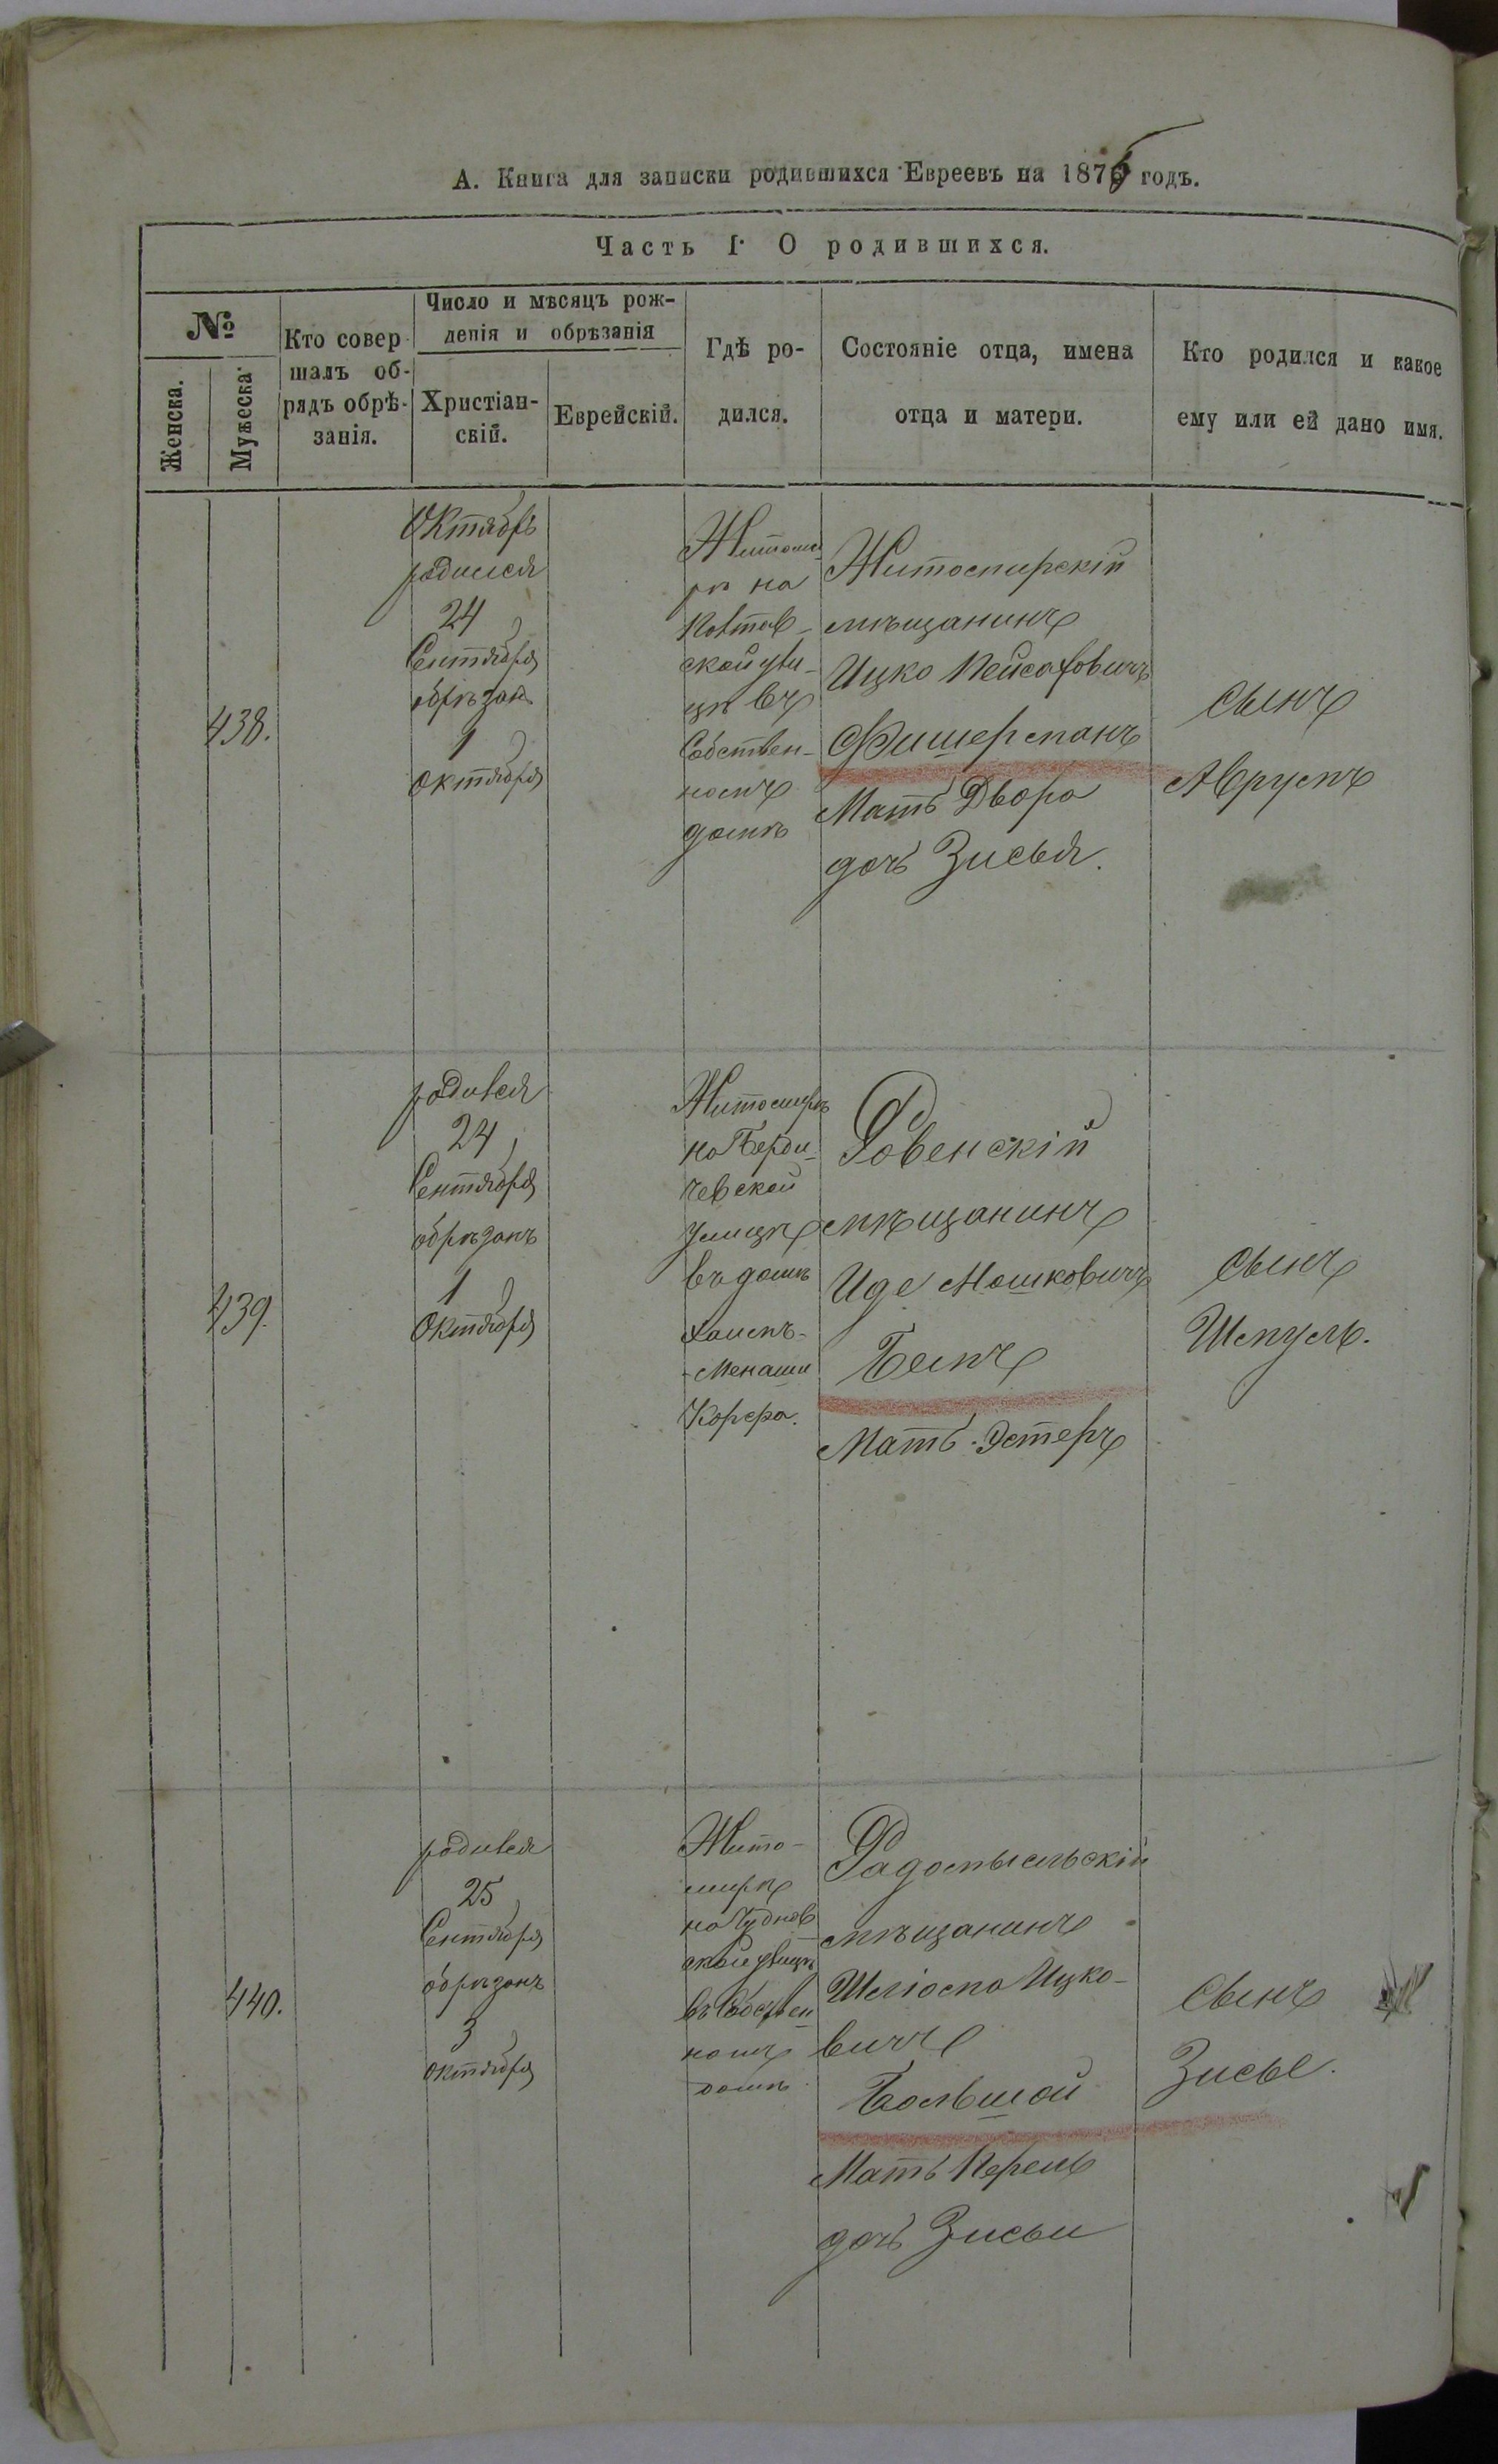 А. Книга для записки родившихся Евреевъ на 1876 годъ.
Часть I. О родившихся.
№
Женска.
Мужеска
Кто совер
шалъ об-
рядъ обрѣ-
занія.
Число и мѣсяцъ рож-
денія и обрѣзанія
Христіан-
скій.
Еврейскій.
Гдѣ ро-
дился.
Состояніе отца, имена
отца и матери.
Кто родился и какое
ему или ей дано имя.
438.
Октябрь
родился
24
Сентября
обрѣзан
1
Октября
Житоми
рѣ на
ской ули-
цѣ въ
Собствен-
номъ
домѣ
Житомирскій
мѣщанинъ
Ицко Пейсаховичъ
Фишерманъ
Мать Двора
дочь Зисья.
Сынъ
Аврумъ
439.
родился
24
Сентября
обрѣзанъ
1
Октября
Житомирѣ
на Берди-
чевской
улицѣ
въ домѣ
Хаимъ-
-Менаши
Ровенскій
мѣщанинъ
Иде Мошковичъ
Мать Эстеръ
Сынъ
Шмуль.
440.
родился
25
Сентября
обрѣзанъ
3
октября
Жито-
мирѣ
на Чуднов
ской улицѣ
въ Собствен
номъ
домѣ
Радомысльскій
мѣщанинъ
Шліома Ицко-
вичъ
Большой
Мать Перель
дочь Зисьи
Сынъ
Зисье.